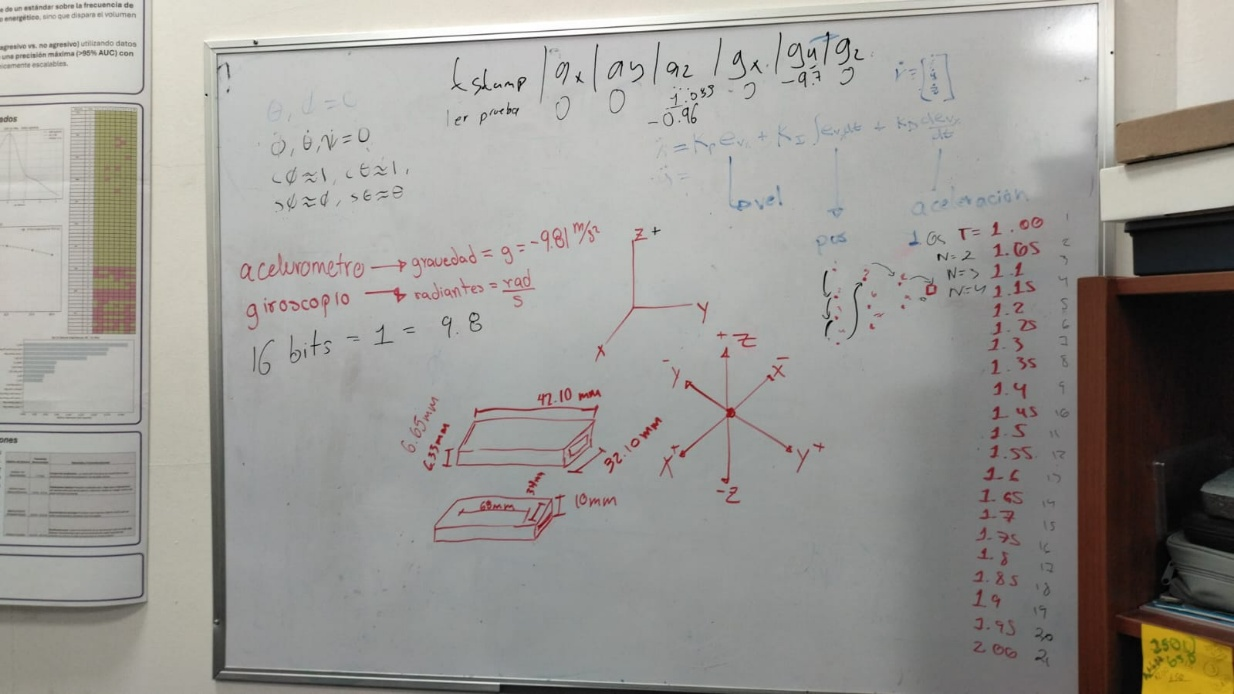 de un estándar sobre la frecuencia de
energético, sino que dispara el volumen
agresivo vs. no agresivo) utilizando datos
una precisión máxima (>95% AUC) con
escalables.
t stamp | ax | ay | az | gx | gy | gz
1er prueba 0 0 0 -9.7 0
-0.96
φ̇, θ̇, ψ̇ = 0
cφ≈1, cθ≈1,
sφ≈φ, sθ≈θ
ẋ = Kp evx + KI ∫evx dt + KD devx/dt
ẏ =
vel
pos
aceleración
acelerometro → gravedad = g = -9.81 m/s²
giroscopio → radiantes = rad/s
16 bits = 1 = 9.8
Z+
Y
X
+Z
-Y
X-
X+
Y+
-Z
42.10 mm
6.65mm
6.35mm
32.10 mm
60mm
10mm
T= 1.00 1
N=2 1.05 2
N=3 1.1 3
N=4 1.15 4
1.2 5
1.25 6
1.3 7
1.35 8
1.4 9
1.45 10
1.5 11
1.55 12
1.6 13
1.65 14
1.7 15
1.75 16
1.8 17
1.85 18
1.9 19
1.95 20
2.00 21